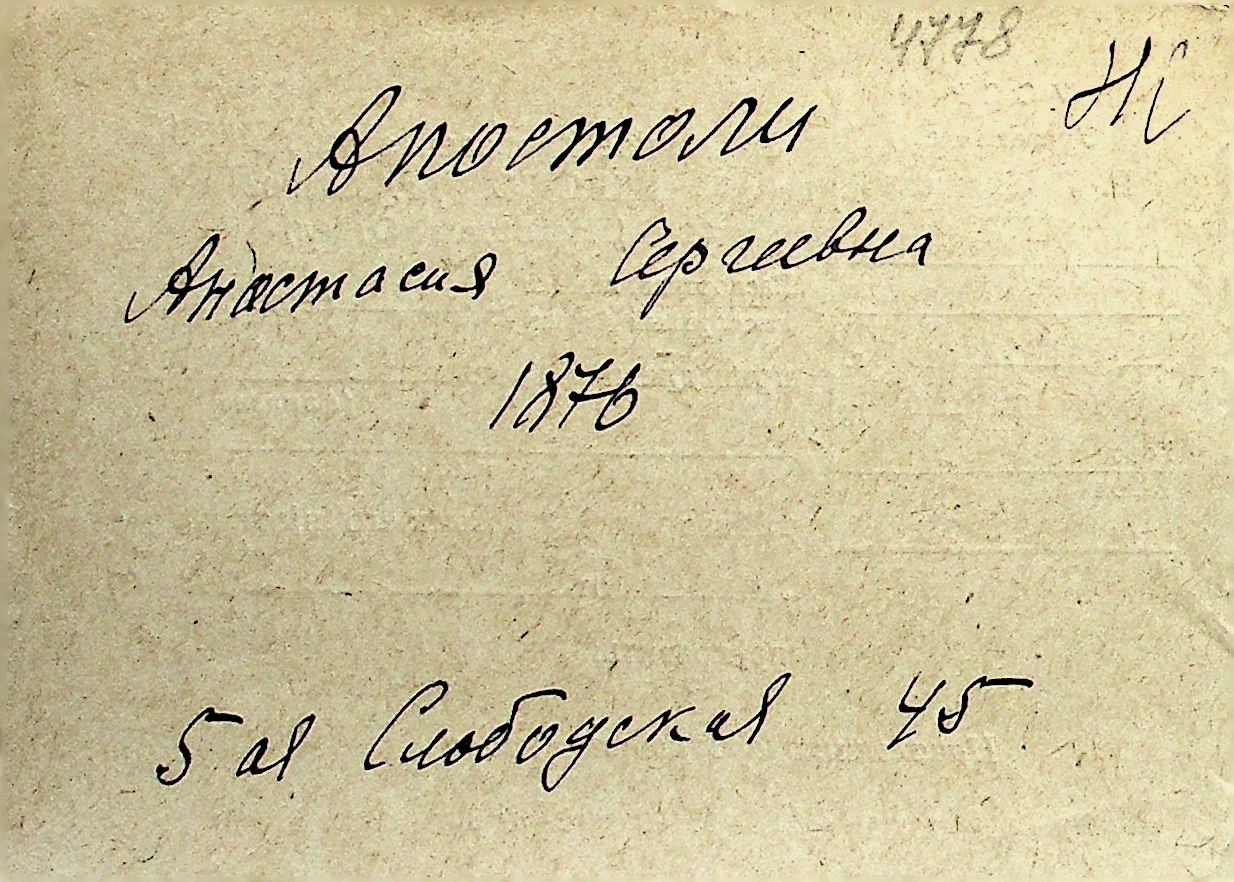 4778
Апостоли
Анастасия Сергеевна
1876
5 ая Слободская 45